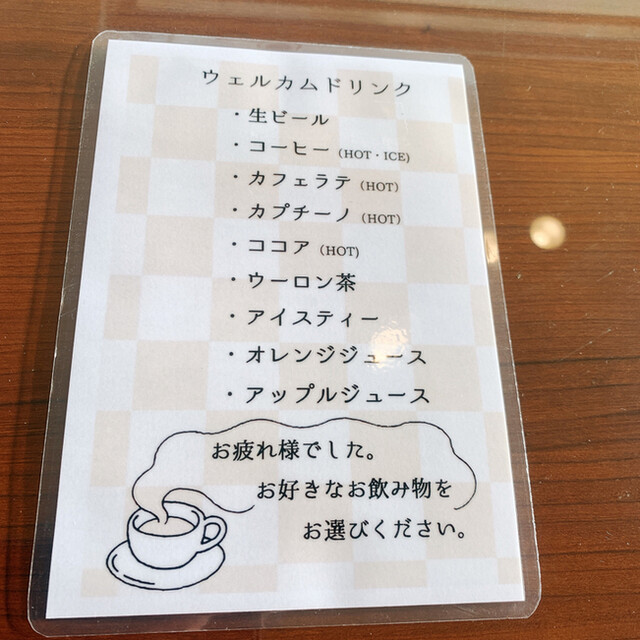 ウェルカムドリンク
・生ビール
・コーヒー (HOT・ICE)
・カフェラテ (HOT)
・カプチーノ (HOT)
・ココア (HOT)
・ウーロン茶
・アイスティー
・オレンジジュース
・アップルジュース
お疲れ様でした。
お好きなお飲み物を
お選びください。